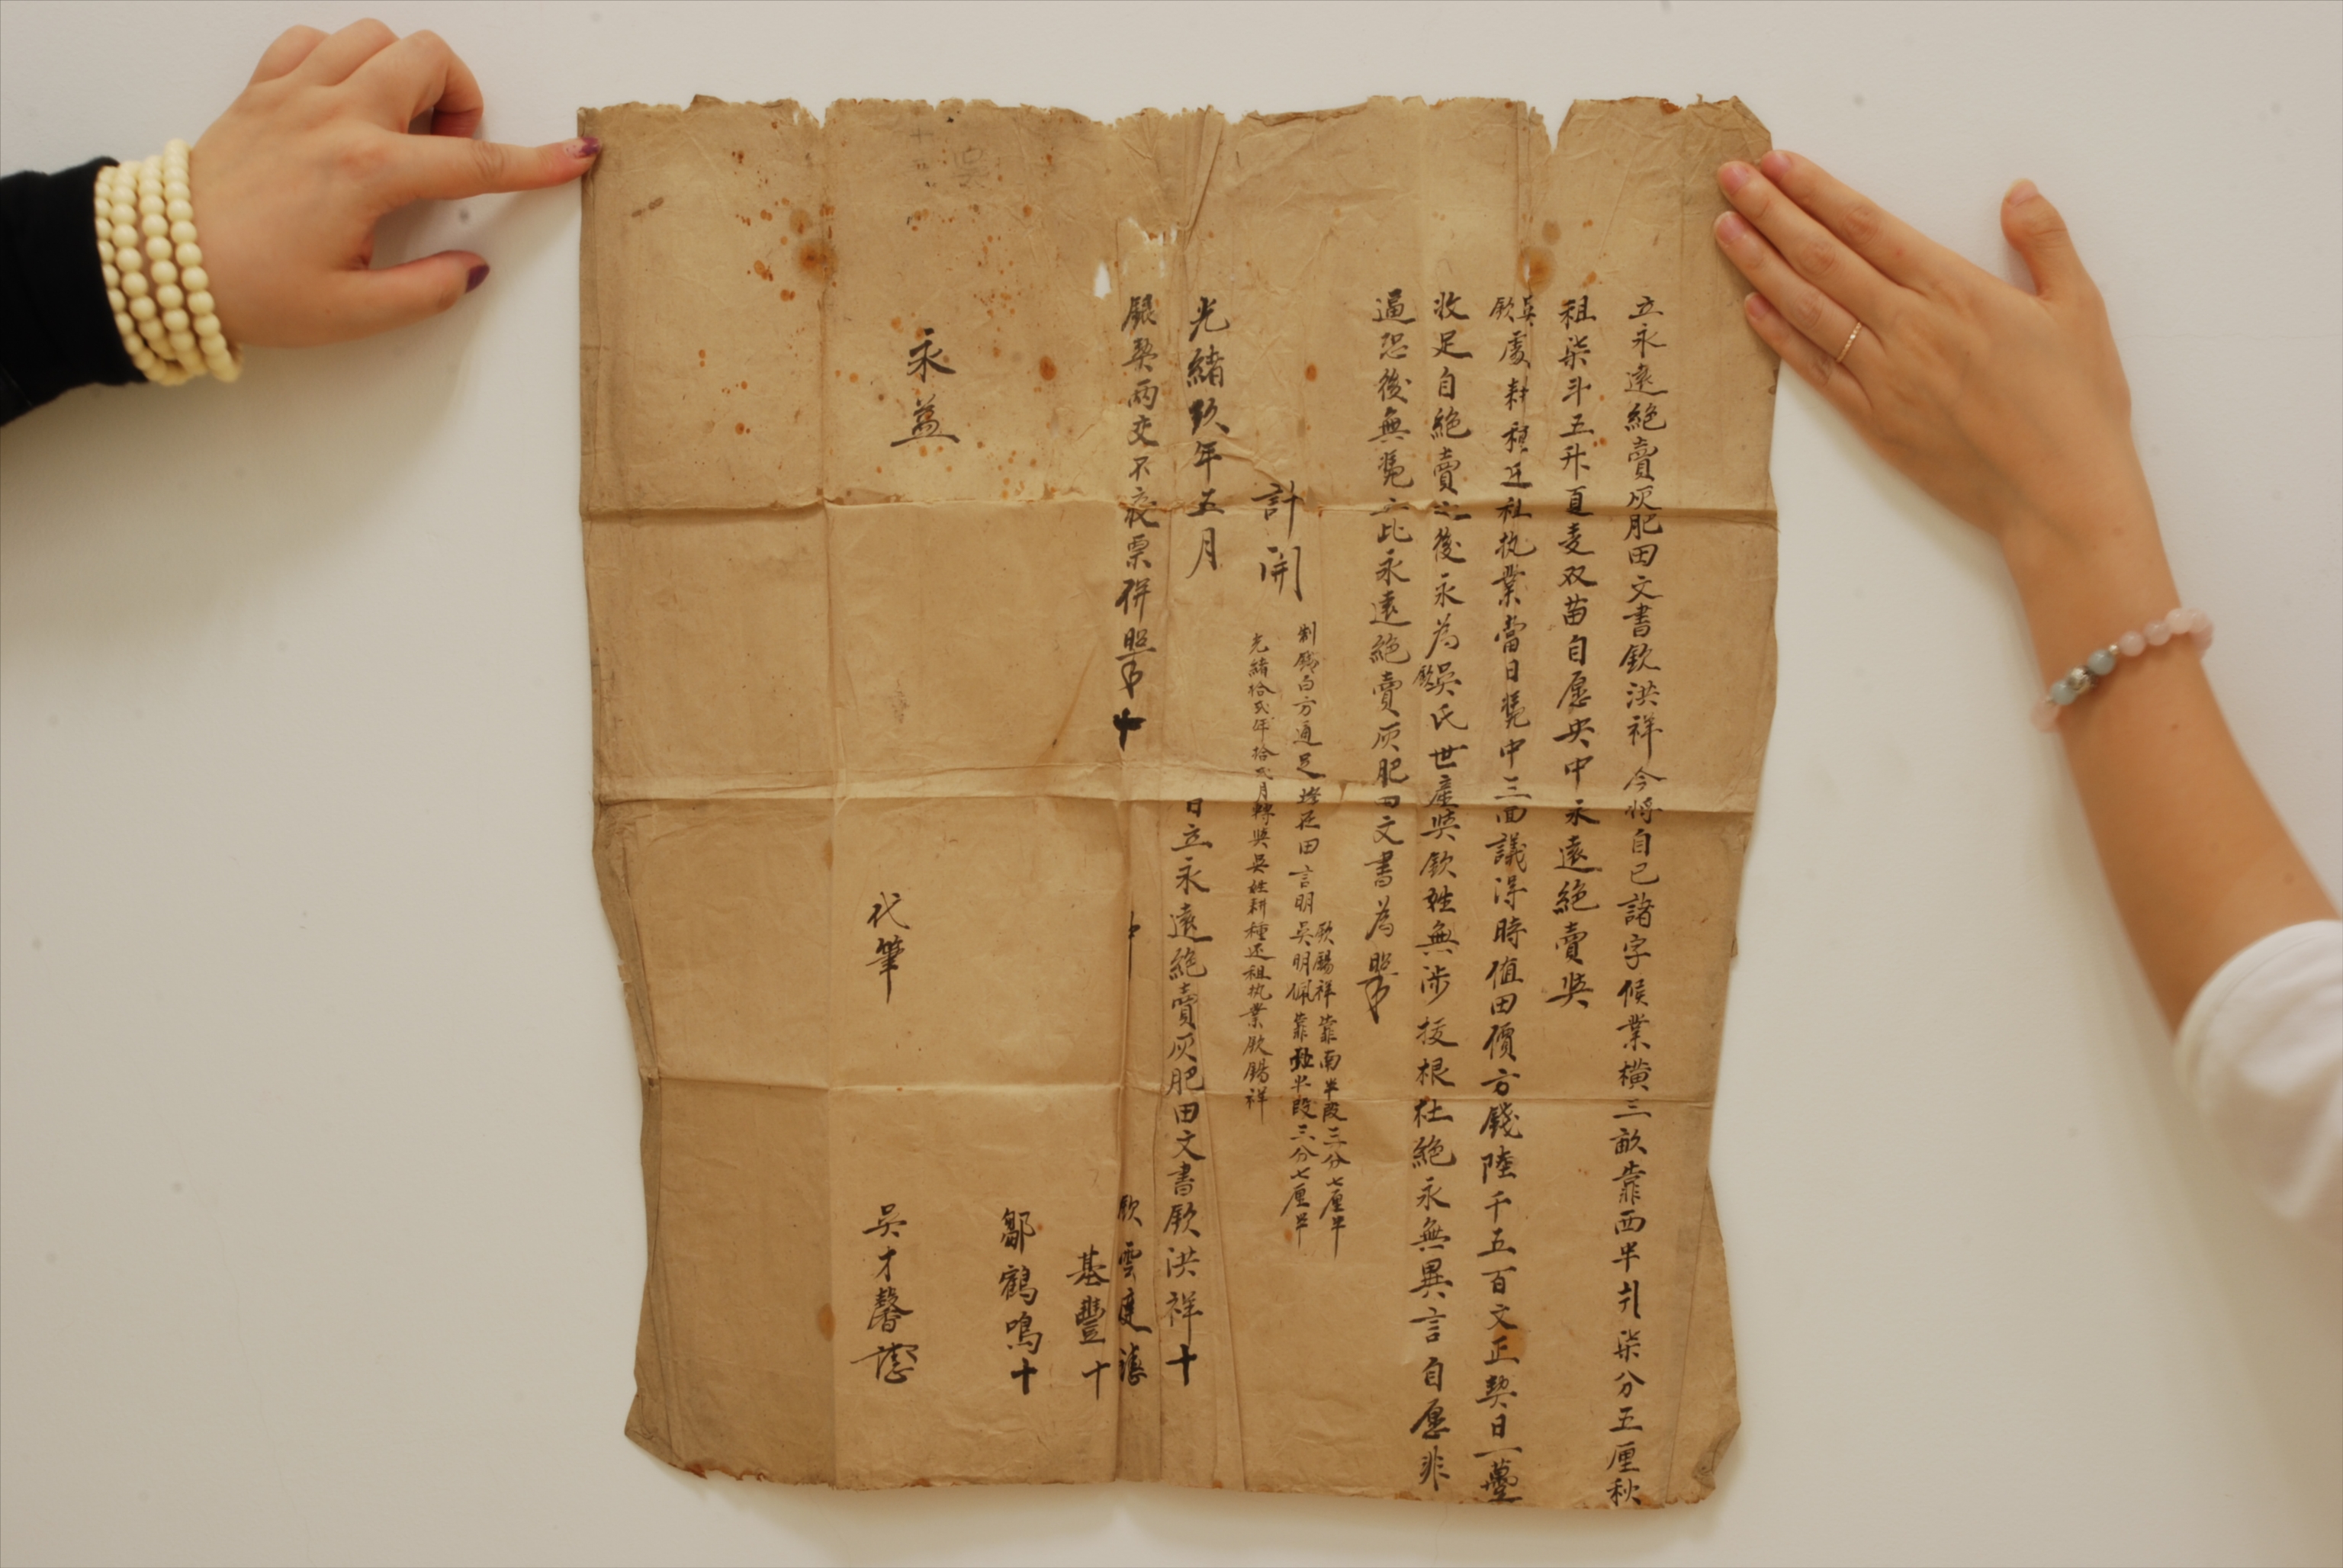 立永遠絕賣灰肥田文書欽洪祥今將自己諸字候業橫三畝靠西半爿柒分五厘秋
祖柒斗五升夏麦双苗自愿央中永遠絕賣與
吳
欽處耕種还租执業當日凴中三面議得時值田價方錢陸千五百文正契日一𠆾
收足自絕賣之後永為
吳
欽氏世產與欽姓無涉拔根杜絕永無異言自愿非
逼恐後無凴立此永遠絕賣灰肥田文書為照
計開
制錢白方通足 田言明
欽賜祥靠南半段三分七厘半
吳明佩靠北半段三分七厘半
光緒拾弍年拾弍月轉與吳姓耕種还祖执業欽賜祥
光緒玖年五月 日立永遠絕賣灰肥田文書欽洪祥十
銀契兩交不夜票併照十
中 欽雲庭
基豐十
鄒鶴鳴十
永益
代筆 吳才馨